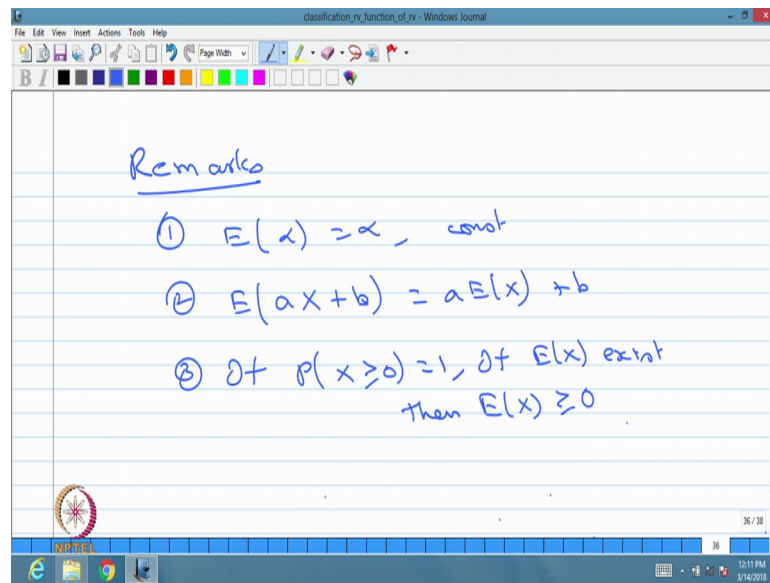 classification_rv_function_of_rv - Windows Journal
File Edit View Insert Actions Tools Help
Page Width
B I
Remarks
① E(α) = α, const
② E(aX+b) = aE(X) + b
③ If P(X≥0)=1, If E(X) exist
then E(X) ≥ 0
36 / 38
NPTEL
36
12:11 PM
3/14/2018